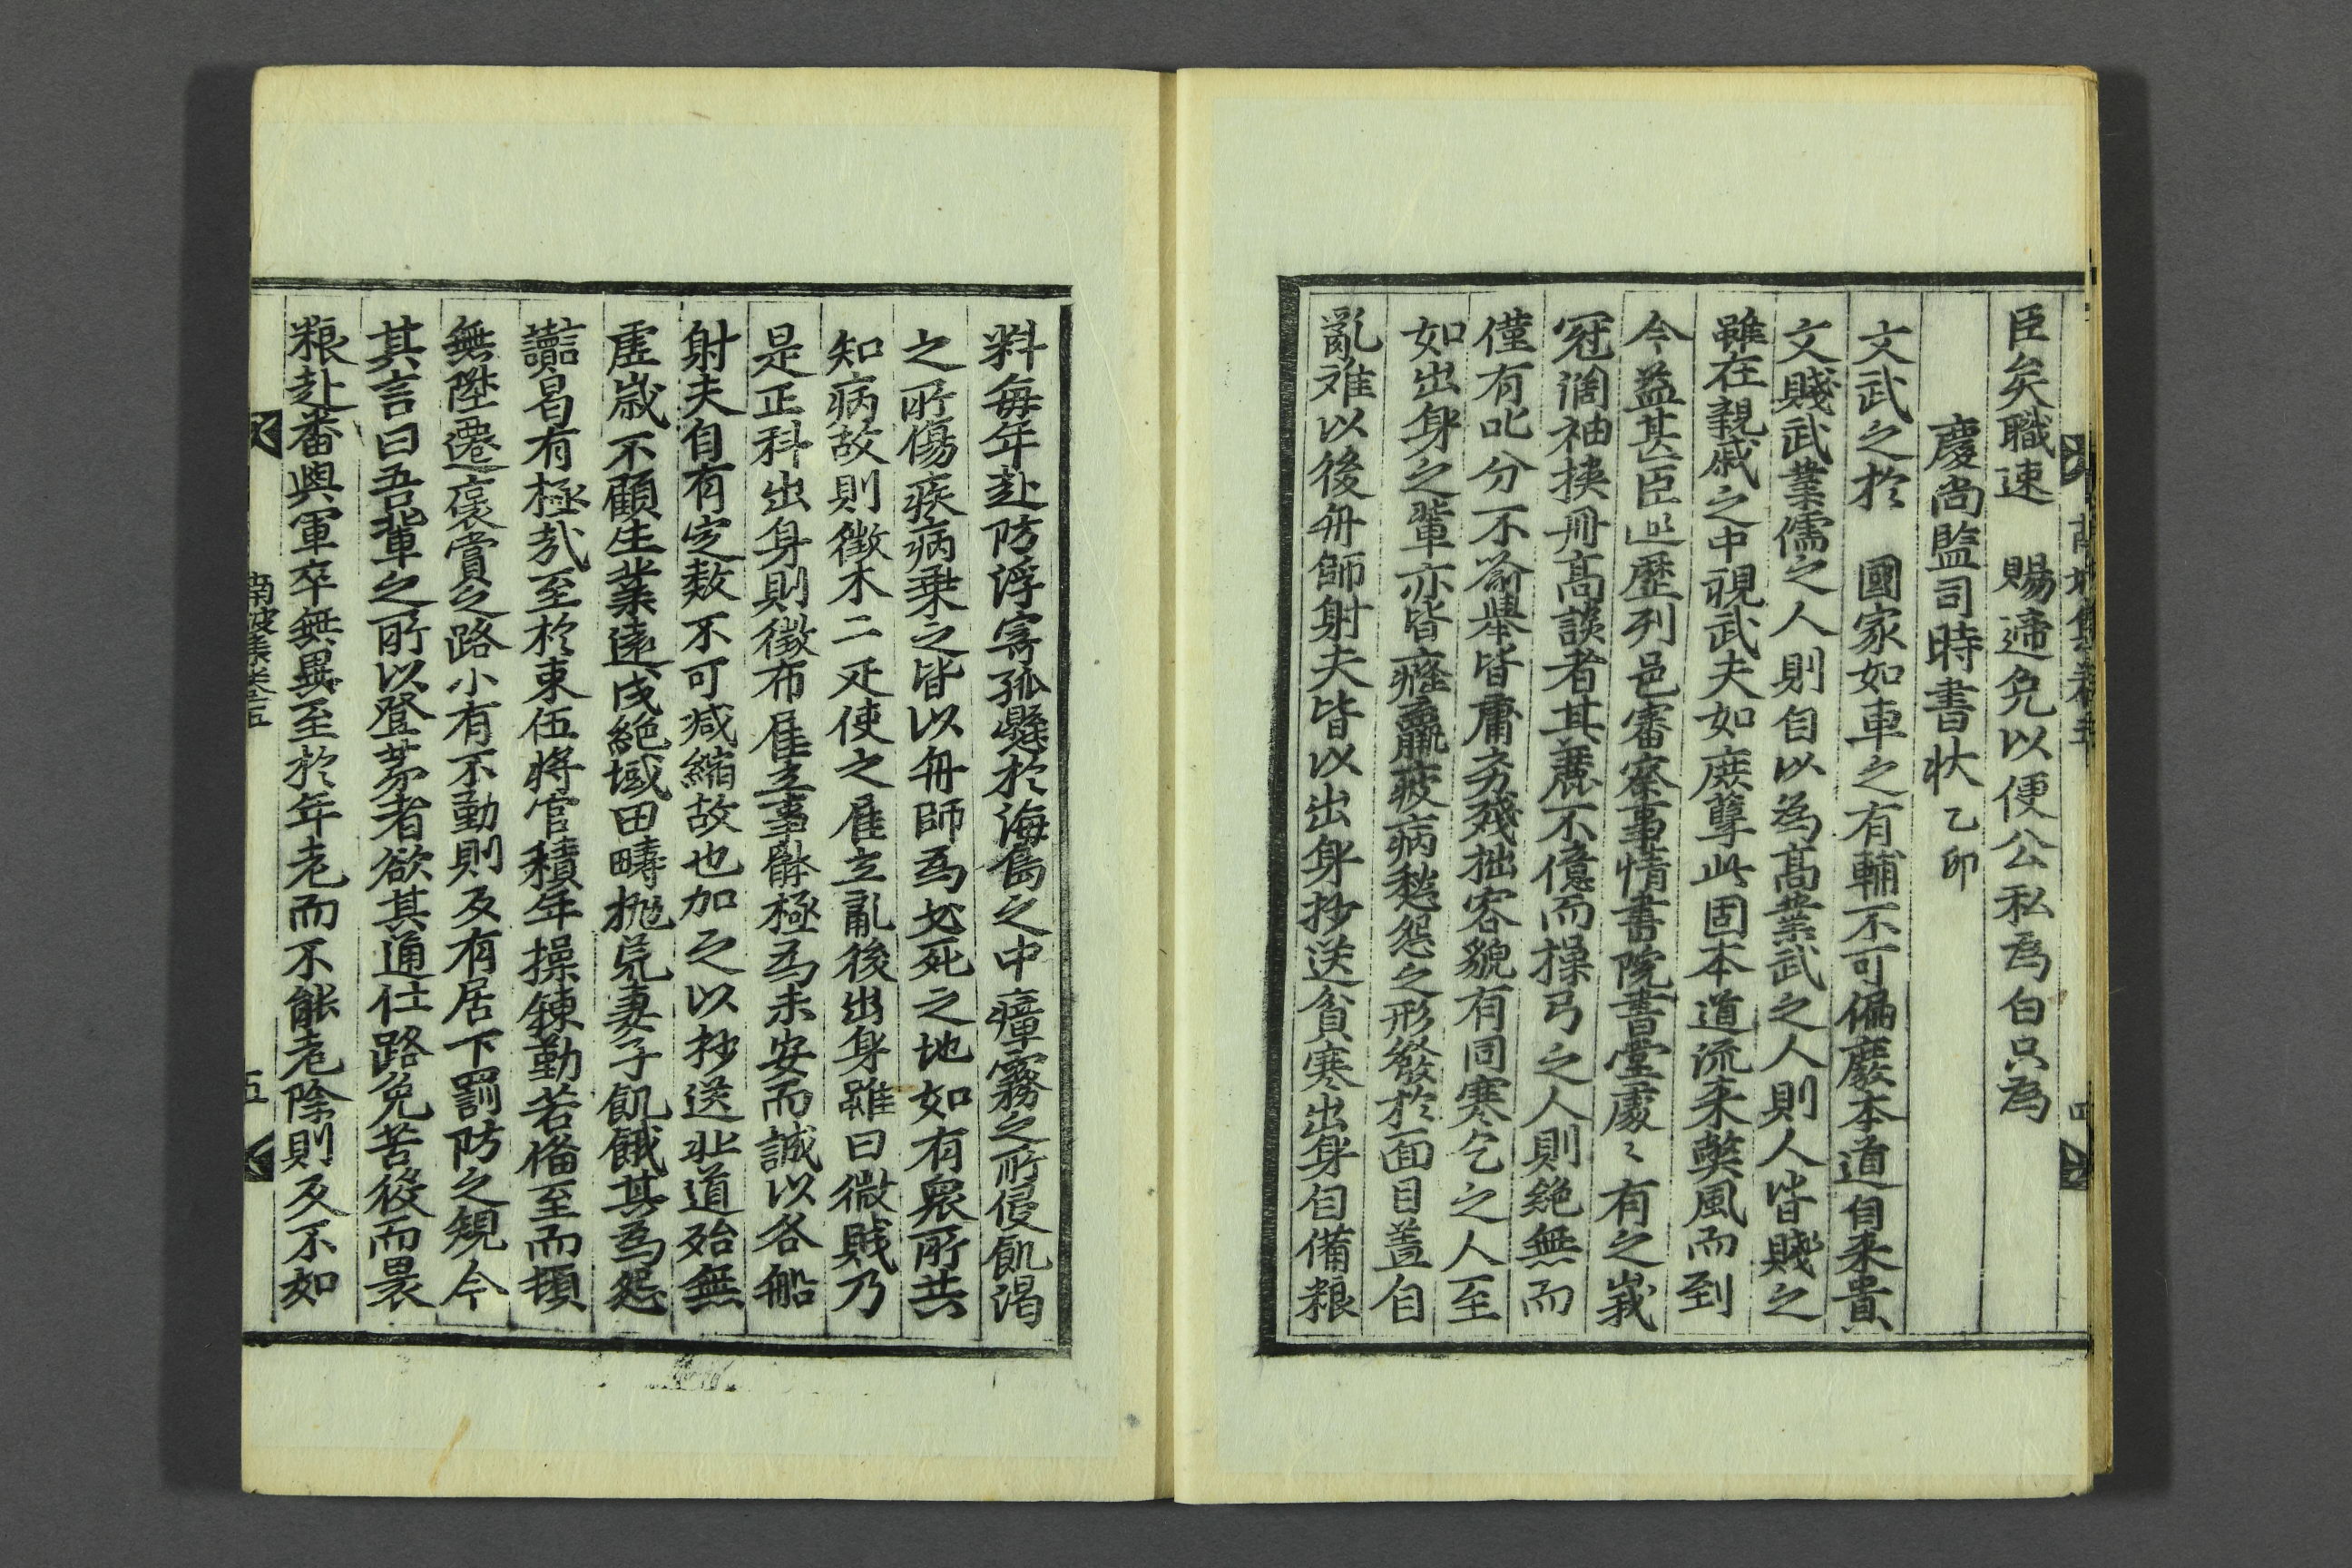 臣矣職速　賜遞免以便公私為白只為
慶尚監司時書狀 乙卯
文武之於　國家如車之有輔不可偏廢本道自来貴
文賤武業儒之人則自以為高業武之人則人皆賤之
雖在親戚之中視武夫如庶孽此固本道流来弊風而到
今益甚臣巡歷列邑審察事情書院書堂處〻有之峩
冠濶袖挟冊高談者其麗不億而操弓之人則絶無而
僅有叱分不喻擧皆庸劣殘拙容貌有同寒乞之人至
如出身之輩亦皆癃羸疲病愁怨之形發於面目盖自
亂难以後舟師射夫皆以出身抄送貧寒出身自備粮
料每年赴防浮寄孤懸於海島之中瘴霧之所侵飢渴
之所傷疾病乗之皆以舟師為必死之地如有衆所共
知病故則徵木二疋使之雇立亂後出身雖曰微賎乃
是正科出身則徵布雇立事躰極為未安而誠以各船
射夫自有定數不可减縮故也加之以抄送北道殆無
虚歳不顧生業遠戍絶域田疇抛荒妻子飢餓其為怨
讟曷有極㢤至於束伍将官積年操鍊勤若俻至而頓
無陞遷褒賞之路小有不勤則及有居下罰防之規今
其言曰吾輩之所以登第者欲其通仕路免苦役而褁
粮赴番與軍卒無異至於年老而不能老除則及不如
南坡集卷五
五